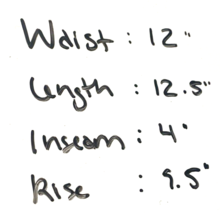 Waist : 12"
Length : 12.5"
Inseam : 4"
Rise : 9.5"